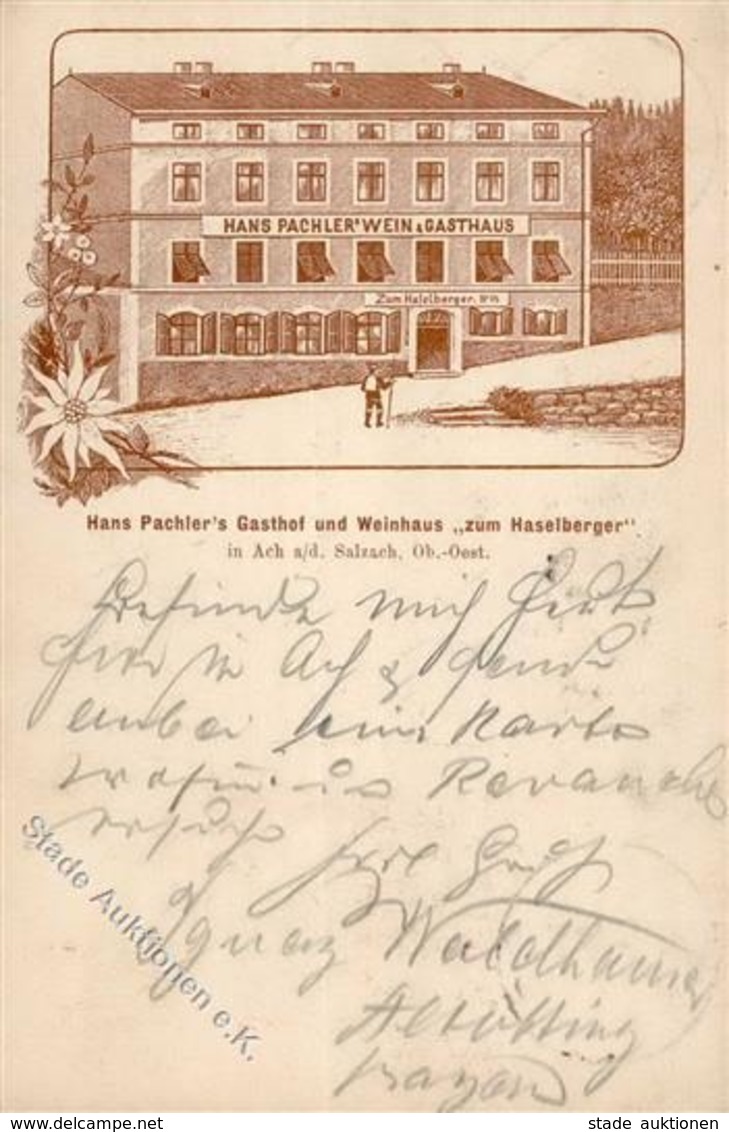 HANS PACHLER'S WEIN & GASTHAUS
Zum Haselberger. Nº 14
Hans Pachler's Gasthof und Weinhaus „zum Haselberger"
in Ach a/d. Salzach, Ob.-Oest.
Befinde mich heute
hier in Ach & sende
anbei eine Karte
wofür um Revanche
ersuche
Herzl Gruß
Ignaz Waldhauser
Altötting
Bayern
Stade Auktionen e.K.
www.delcampe.net
stade auktionen